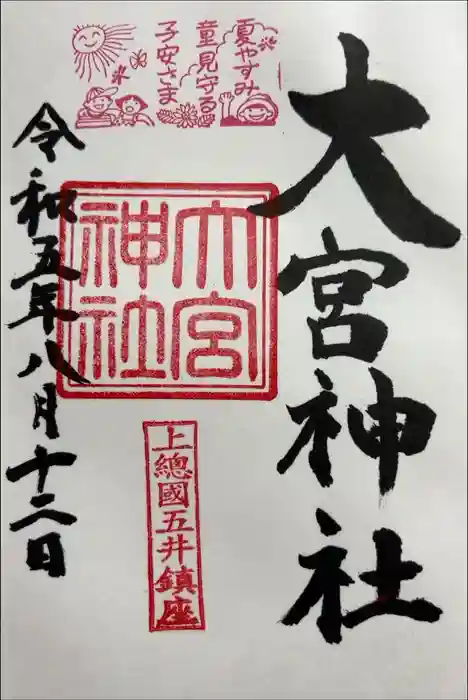 夏やすみ
童見守る
子安さま
大宮神社
大宮
神社
上總國五井鎮座
令和五年八月十二日